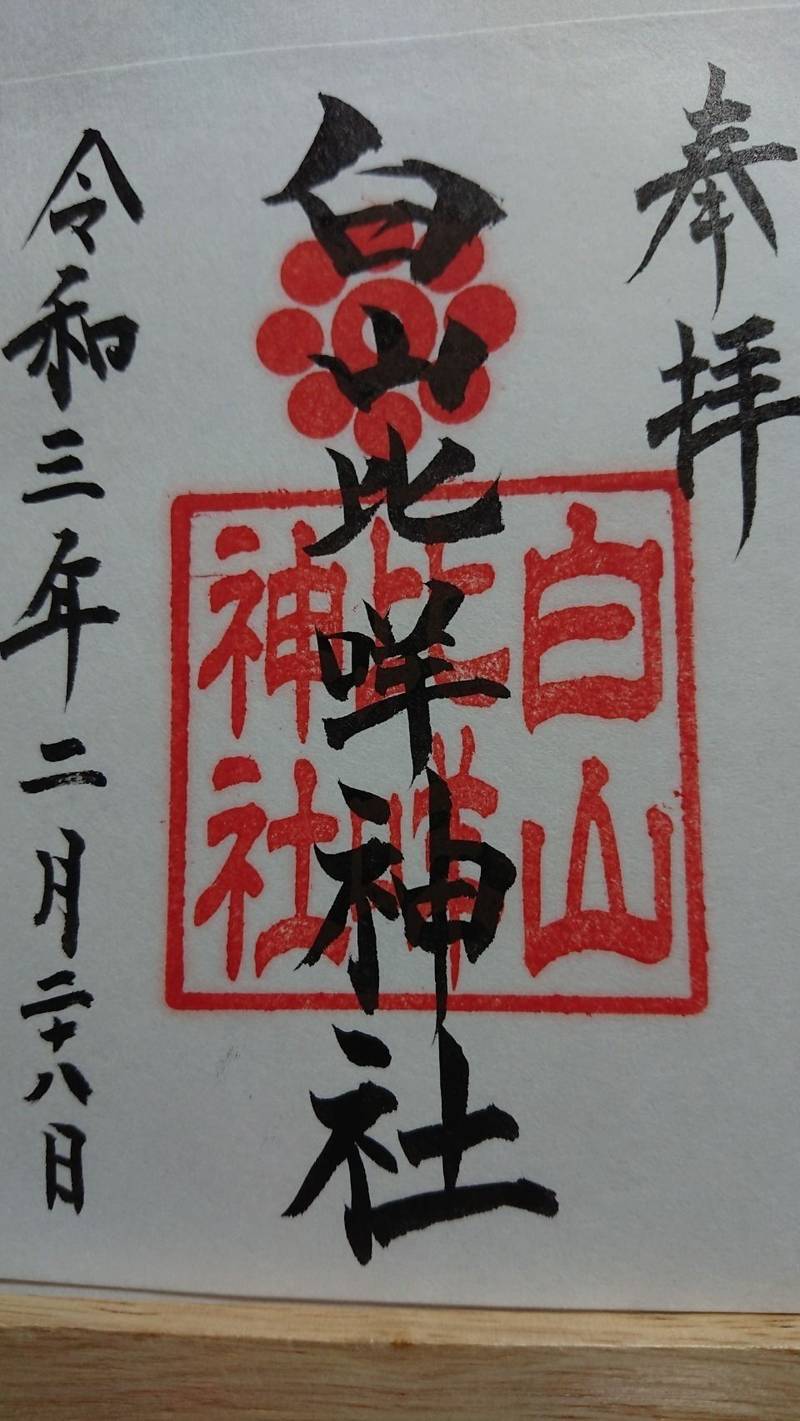 奉拝
白山比咩神社
白山
比咩
神社
令和三年二月二十八日